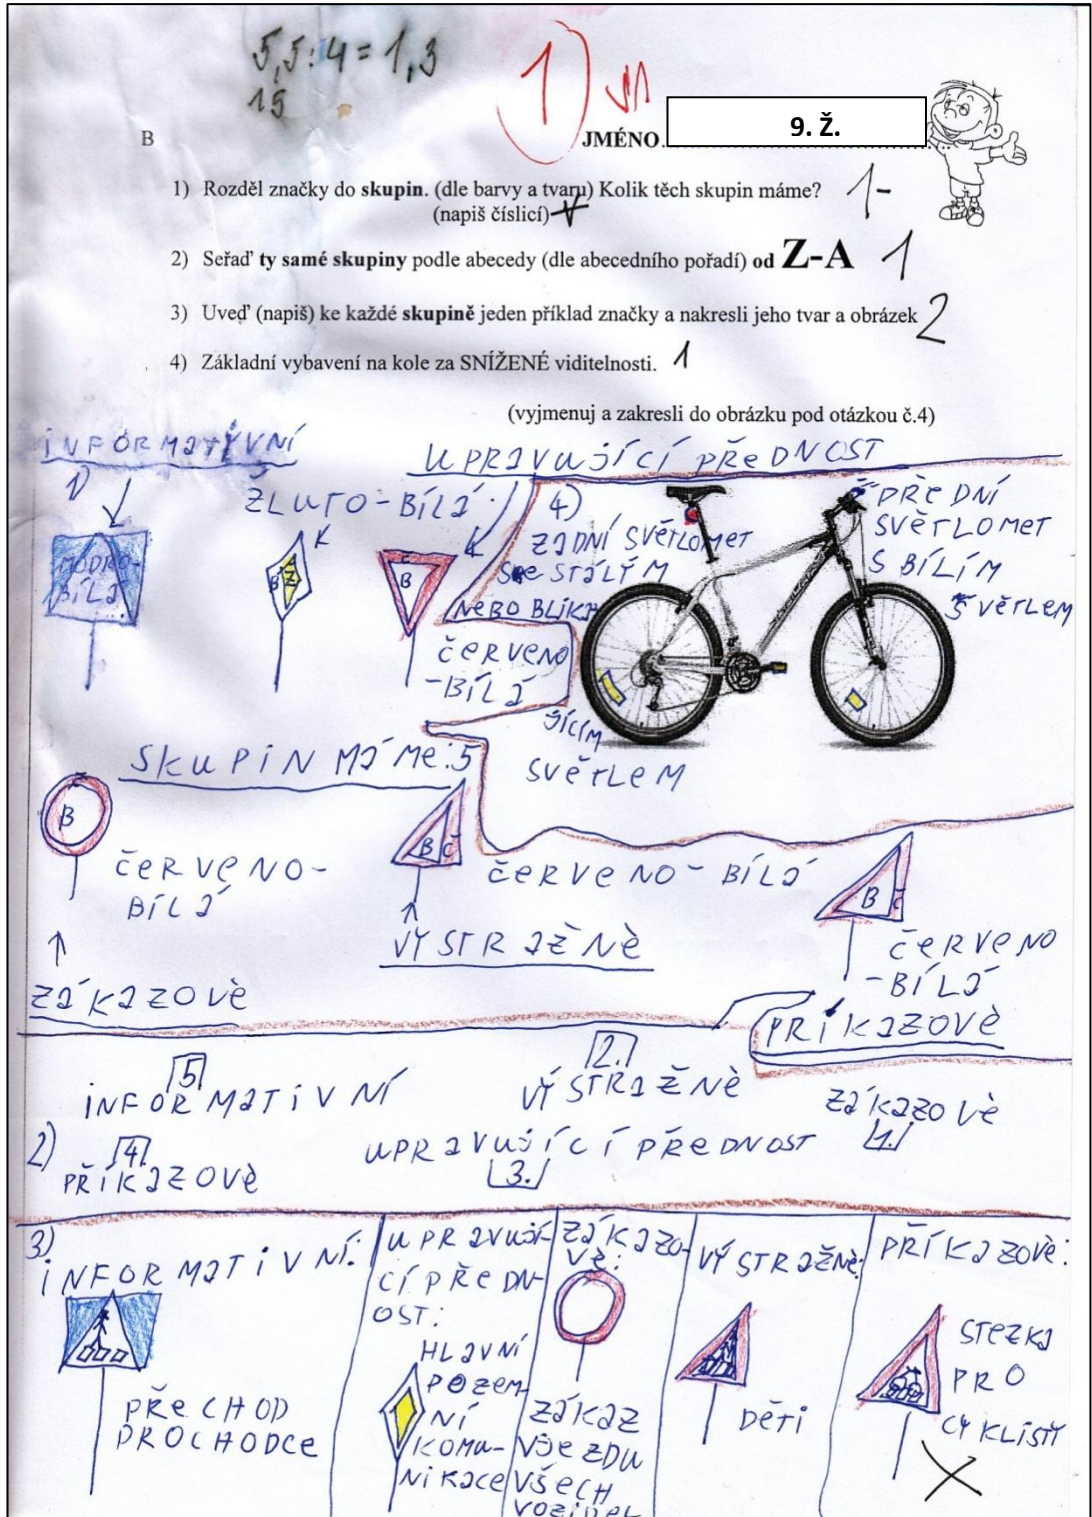 5,5:4 = 1,3
15
1
B
JMÉNO
9. Ž.
1) Rozděl značky do skupin. (dle barvy a tvaru) Kolik těch skupin máme? 1-
(napiš číslicí)
2) Seřaď ty samé skupiny podle abecedy (dle abecedního pořadí) od Z-A 1
3) Uveď (napiš) ke každé skupině jeden příklad značky a nakresli jeho tvar a obrázek 2
4) Základní vybavení na kole za SNÍŽENÉ viditelnosti. 1
(vyjmenuj a zakresli do obrázku pod otázkou č.4)
INFORMATIVNÍ
1)
MODRO-
BÍLÁ
UPRAVUJÍCÍ PŘEDNOST
ŽLUTO-BÍLÁ
B Ž
B
ČERVENO
-BÍLÁ
4)
ZADNÍ SVĚTLOMET
SE STÁLÝM
NEBO BLIKA
JÍCÍM
SVĚTLEM
PŘEDNÍ
SVĚTLOMET
S BÍLÍM
SVĚTLEM
SKUPIN MÁME:5
B
ČERVENO-
BÍLÁ
ZÁKAZOVÈ
B Č
ČERVENO-BÍLÁ
VÝSTRAŽNÈ
B Č
ČERVENO
-BÍLÁ
PŘÍKAZOVÈ
2)
5
INFORMATIVNÍ
2.
VÝSTRAŽNÈ
ZÁKAZOVÈ
1.
4.
PŘÍKAZOVÈ
UPRAVUJÍCÍ PŘEDNOST
3.
3)
INFORMATIVNÍ:
PŘECHOD
PROCHODCE
UPRAVUJÍ-
CÍ PŘEDN-
OST:
HLAVNÍ
POZEM-
NÍ
KOMU-
NIKACE
ZÁKAZO-
VÈ:
ZÁKAZ
VJEZDU
VŠECH
VOZIDEL
VÝSTRAŽNÈ:
DĚTI
PŘÍKAZOVÈ:
STEZKA
PRO
CYKLISTY